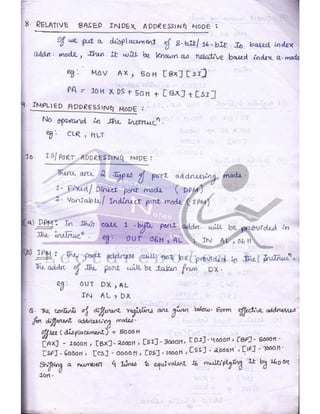 8. RELATIVE BASED INDEX ADDRESSING MODE :
If we put a displacement of 8-bit/16-bit to based index
addr. mode, then it will be known as relative based index a.mode
eg: MOV AX, 50H [BX][SI]
PA = 10H X DS + 50H + [BX] + [SI]
9. IMPLIED ADDRESSING MODE :
No operand in the instruction.
eg: CLR, HLT
10. IO/PORT ADDRESSING MODE :
There are 2 types of port addressing mode
1- Fixed/ Direct port mode (DPM)
2- Variable/ Indirect port mode (IPM)
(a) DPM: In this case 1-byte port addr. will be provided in
the instruction eg: OUT 06H, AL IN AL, 06H
(b) IPM: The port address will not be provided in the instruction.
The addr. of the port will be taken from DX.
eg: OUT DX, AL
IN AL, DX
Q. The contents of different registers are given below. Form effective addresses
for different addressing modes.
Offset (displacement) = 5000H
[AX] - 1000H, [BX] - 2000H, [SI] - 3000H, [DI] - 4000H, [BP] - 5000H.
[SP] - 6000H, [CS] - 0000H, [DS] - 1000H, [SS] - 2000H, [IP] - 7000H.
Shifting a number 4 times is equivalent to multiplying it by 16D or
10H.